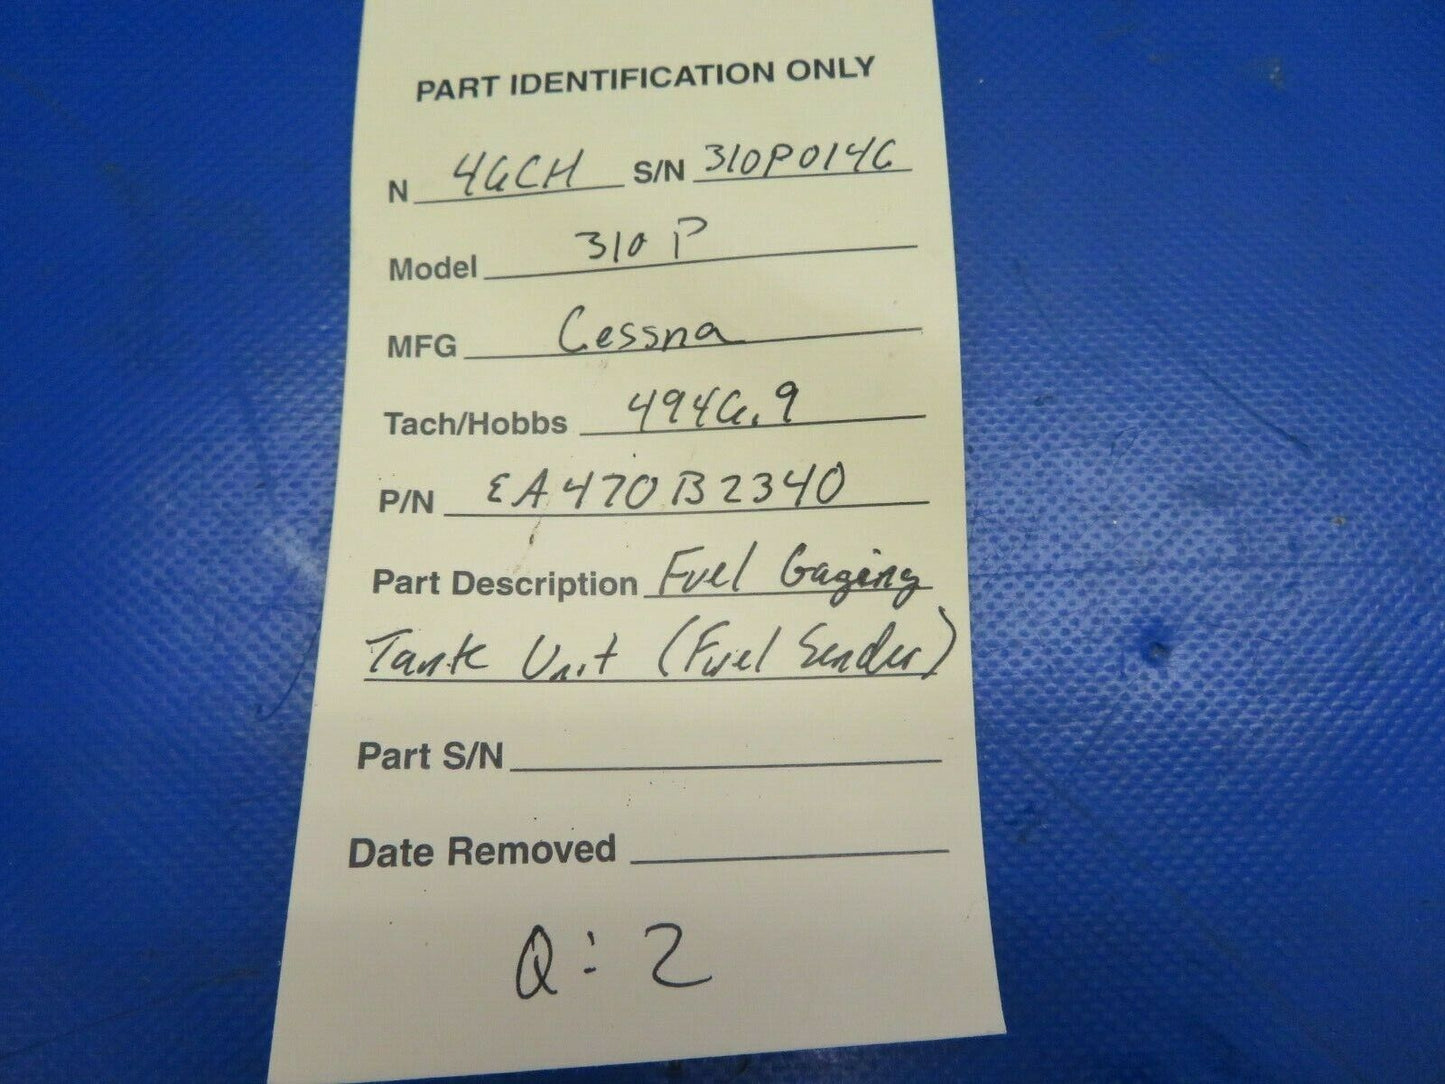 PART IDENTIFICATION ONLY
N 46CH S/N 310P0146
Model 310 P
MFG Cessna
Tach/Hobbs 4946.9
P/N EA470B2340
Part Description Fuel Gaging
Tank Unit (Fuel Sender)
Part S/N
Date Removed
Q: 2